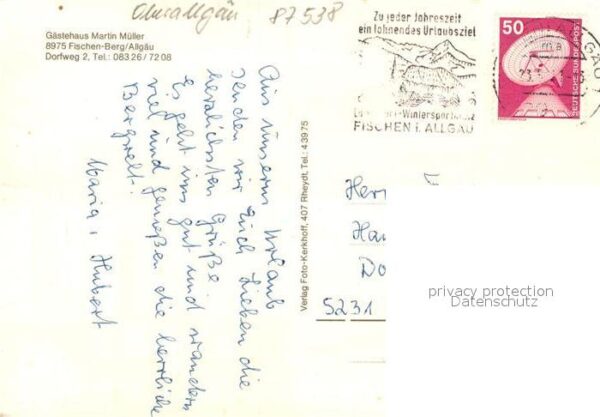 Oberallgäu 87538
Gästehaus Martin Müller
8975 Fischen-Berg/Allgäu
Dorfweg 2, Tel.: 083 26 / 72 08
Aus unserm Urlaub
senden wir Euch Lieben die
herzlichsten Grüße.
Es geht uns gut und wandern
viel und genießen die herrliche
Bergwelt.
Maria, Hubert
Verlag Foto-Kerkhoff, 407 Rheydt, Tel.: 43975
Zu jeder Jahreszeit
ein lohnendes Urlaubsziel
-Wintersport
FISCHEN i. ALLGÄU
50
DEUTSCHE BUNDESPOST
5231
privacy protection
Datenschutz